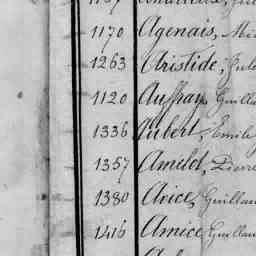 1170 Agenais,
1263 Aristide, Jule
1120 Auffray Guilla
1336 Aubert, Emile
1357 Amelot,
1380 Avice, Guillau
1416 Amice Guillau